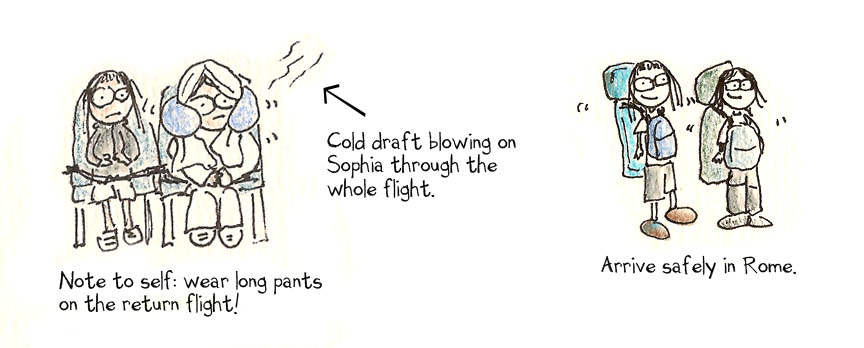 Cold draft blowing on
Sophia through the
whole flight.
Note to self: wear long pants
on the return flight!
Arrive safely in Rome.